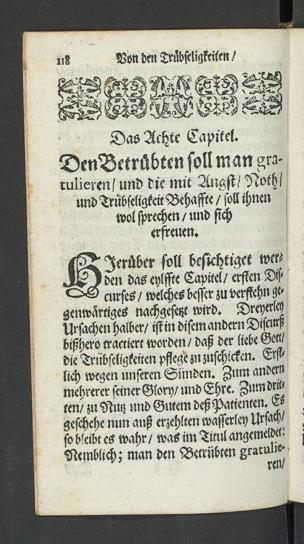 118 Von den Trübseligkeiten /
Das Achte Capitel.
Den Betrübten soll man gra-
tulieren / und die mit Angst / Noth /
und Trübseligkeit Behaffte / soll ihnen
wol sprechen / und sich
erfreuen.
HIerüber soll besichtiget wer-
den das eylffte Capitel / ersten Dis-
curses / welches besser zu verstehn ge-
genwärtiges nachgesetzt wird. Dreyerley
Ursachen halber / ist in disem andern Discurß
bißhero tractiert worden / daß der liebe Gott /
die Trübseligkeiten pflege zu zuschicken. Erst-
lich wegen unseren Sünden. Zum andern
mehrerer seiner Glory / und Ehre. Zum drit-
ten / zu Nutz und Gutem deß Patienten. Es
geschehe nun auß erzehlten wasserley Ursach /
so bleibt es wahr / was im Titul angemeldet:
Nemblich; man den Betrübten gratulie-
ren /